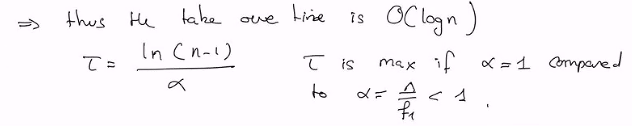 ⇒ thus the take over time is O(log n)
τ = ln (n-1) / α τ is max if α = 1 compared
to α = 1 / f₁ < 1 .